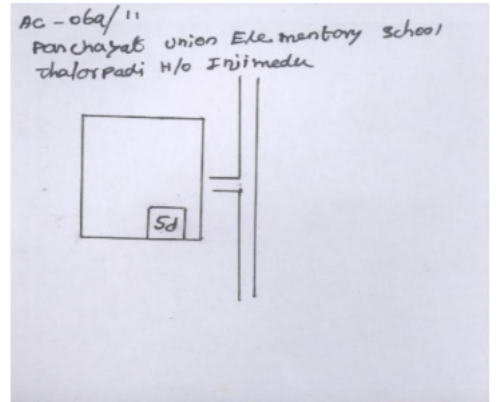 AC-069/11
Panchayat union Elementory School
Thalorpadi H/o Injimedu
Sd